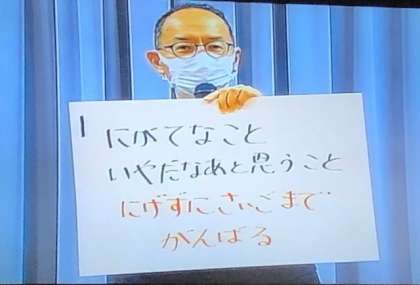 にがてなこと
いやだなあと思うこと
にげずにさいごまで
がんばる